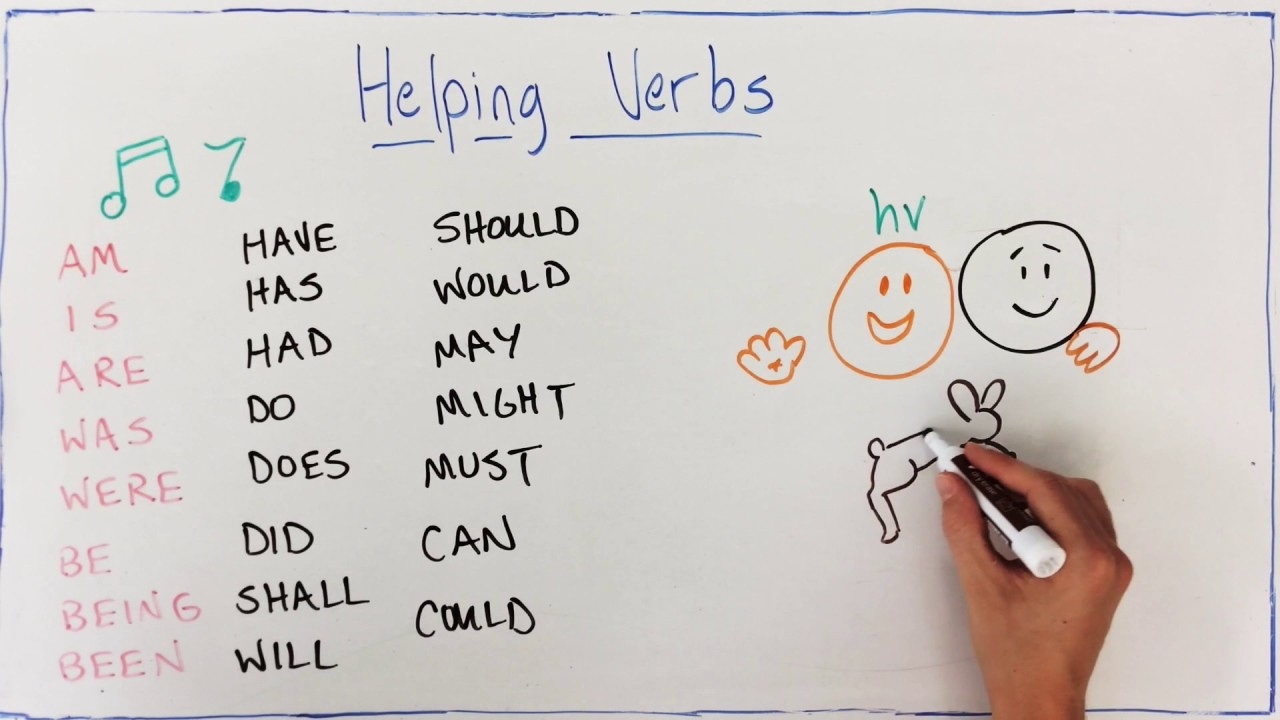 Helping Verbs
hv
AM
IS
ARE
WAS
WERE
BE
BEING
BEEN
HAVE
HAS
HAD
DO
DOES
DID
SHALL
WILL
SHOULD
WOULD
MAY
MIGHT
MUST
CAN
COULD